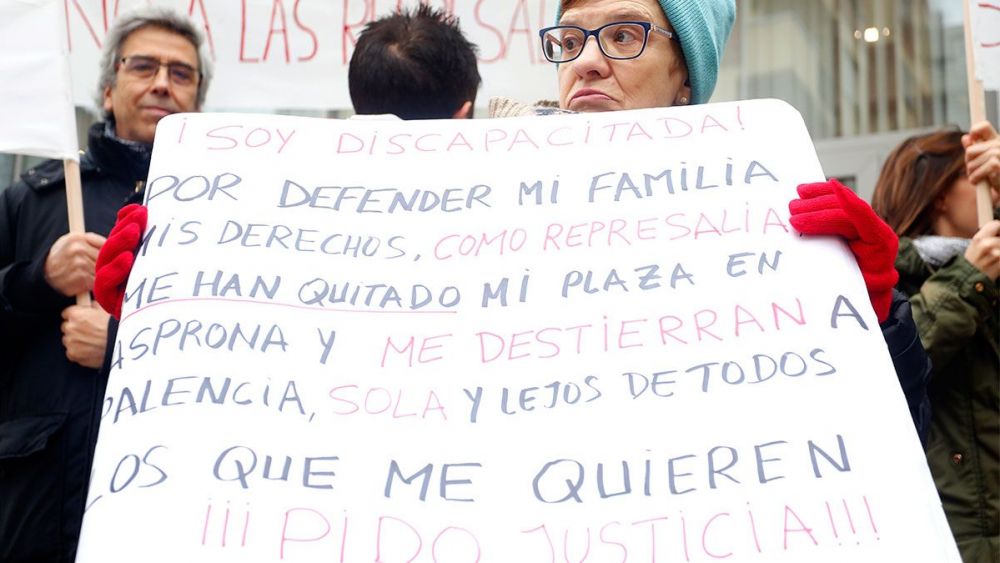 A LAS REPRESAL
¡SOY DISCAPACITADA!
POR DEFENDER MI FAMILIA
MIS DERECHOS, COMO REPRESALIA,
ME HAN QUITADO MI PLAZA EN
ASPRONA Y ME DESTIERRAN A
PALENCIA, SOLA Y LEJOS DE TODOS
LOS QUE ME QUIEREN
¡¡¡PIDO JUSTICIA!!!